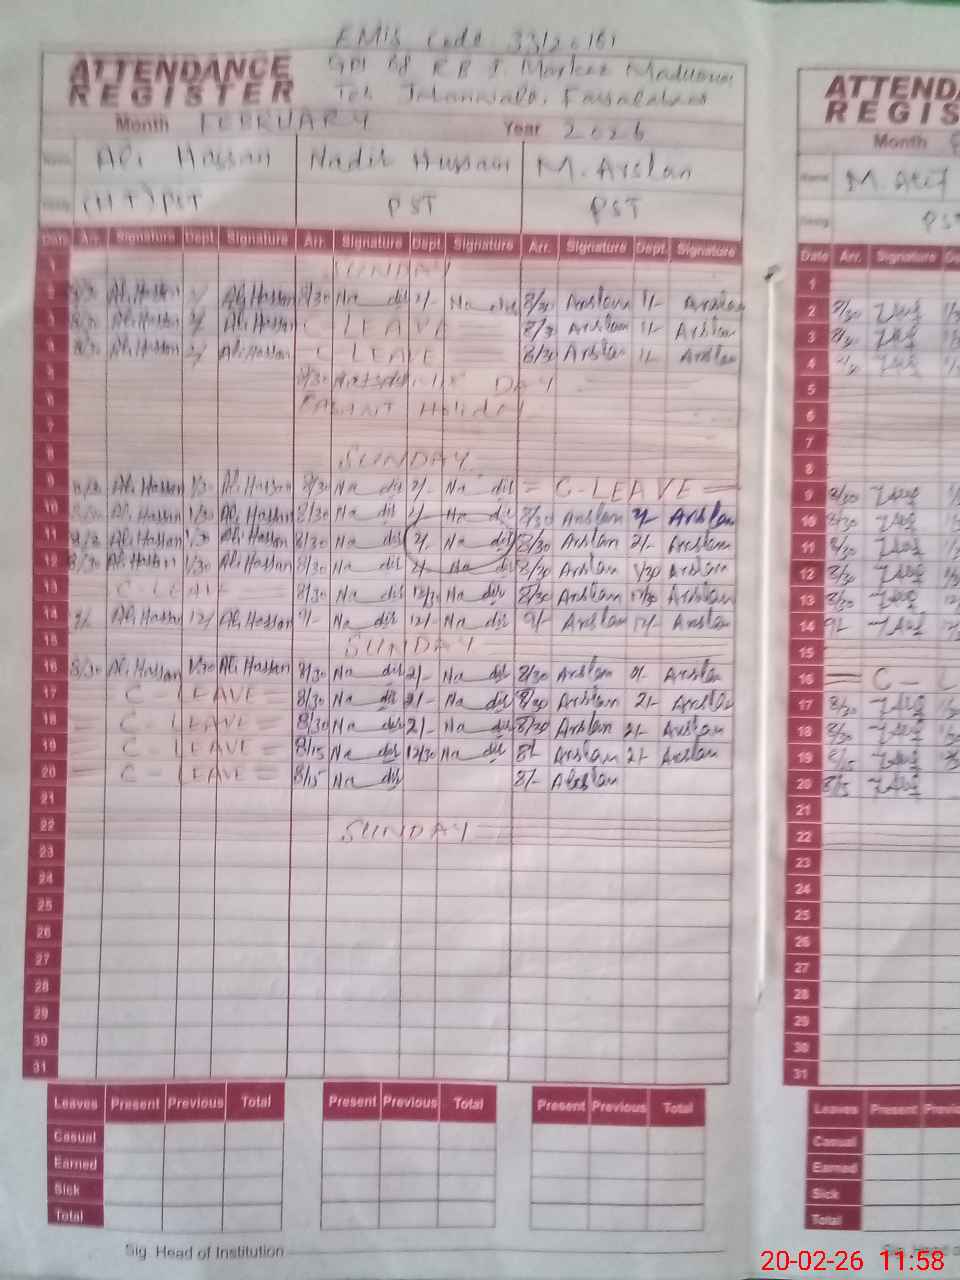 EMIS Code 33120161
ATTENDANCE REGISTER
Teh Jaranwala, Faisalabad
Month FEBRUARY Year 2026
Ali Hassan Nadir Hussain M. Arslan
(HT) PST PST PST
Date Arr. Signature Dept. Signature Arr. Signature Dept. Signature Arr. Signature Dept. Signature
1 SUNDAY
2 8/30 Ali Hassan Ali Hassan 8/30 Na dir 2/- Na dir 8/30 Arslan 1/- Arslan
3 8/30 Ali Hassan 2/ Ali Hassan C LEAVE 8/30 Arslan 1/- Arslan
4 8/30 Ali Hassan 2/ Ali Hassan C LEAVE 8/30 Arslan 1/- Arslan
5 DAY
6 Holiday
7
8 SUNDAY
9 8/30 Ali Hassan 1/30 Ali Hassan 8/30 Na dir 2/- Na dir = C-LEAVE =
10 8/30 Ali Hassan 1/30 Ali Hassan 8/30 Na dir 2/- Na dir 8/30 Arslan 2/- Arslan
11 8/30 Ali Hassan 1/30 Ali Hassan 8/30 Na dir 2/- Na dir 8/30 Arslan 2/- Arslan
12 8/30 Ali Hassan 1/30 Ali Hassan 8/30 Na dir 2/- Na dir 8/30 Arslan 1/30 Arslan
13 C-LEAVE 8/30 Na dir 12/30 Na dir 8/30 Arslan 12/30 Arslan
14 9/- Ali Hassan 12/ Ali Hassan 9/- Na dir 12/- Na dir 9/- Arslan 12/- Arslan
15 SUNDAY
16 8/30 Ali Hassan 1/30 Ali Hassan 8/30 Na dir 2/- Na dir 8/30 Arslan 2/- Arslan
17 C - LEAVE 8/30 Na dir 2/- Na dir 8/30 Arslan 2/- Arslan
18 C - LEAVE 8/30 Na dir 2/- Na dir 8/30 Arslan 2/- Arslan
19 C - LEAVE 8/15 Na dir 12/30 Na dir 8/- Arslan 2/- Arslan
20 C - LEAVE 8/15 Na dir 8/- Arslan
21
22 SUNDAY
23
24
25
26
27
28
29
30
31
Leaves Present Previous Total Present Previous Total Present Previous Total
Casual
Earned
Sick
Total
Sig. Head of Institution
ATTENDA
REGIS
Month
M. Atif
PS
Date Arr. Signature De
1
2 8/30
3 8/30
4
5
6
7
8
9 8/30
10 8/30
11 8/30
12 8/30
13 8/30
14 9/-
15
16 = C - L
17 8/30
18 8/30
19 8/15
20 8/15
21
22
23
24
25
26
27
28
29
30
31
Leaves Present Previo
Casual
Earned
Sick
Total
20-02-26 11:58